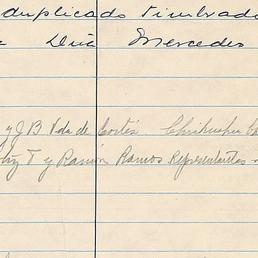 duplicado timbrado
Dña Mercedes
y J B Vda de Cortés Chihuahua
y Ramón Ramos Representantes